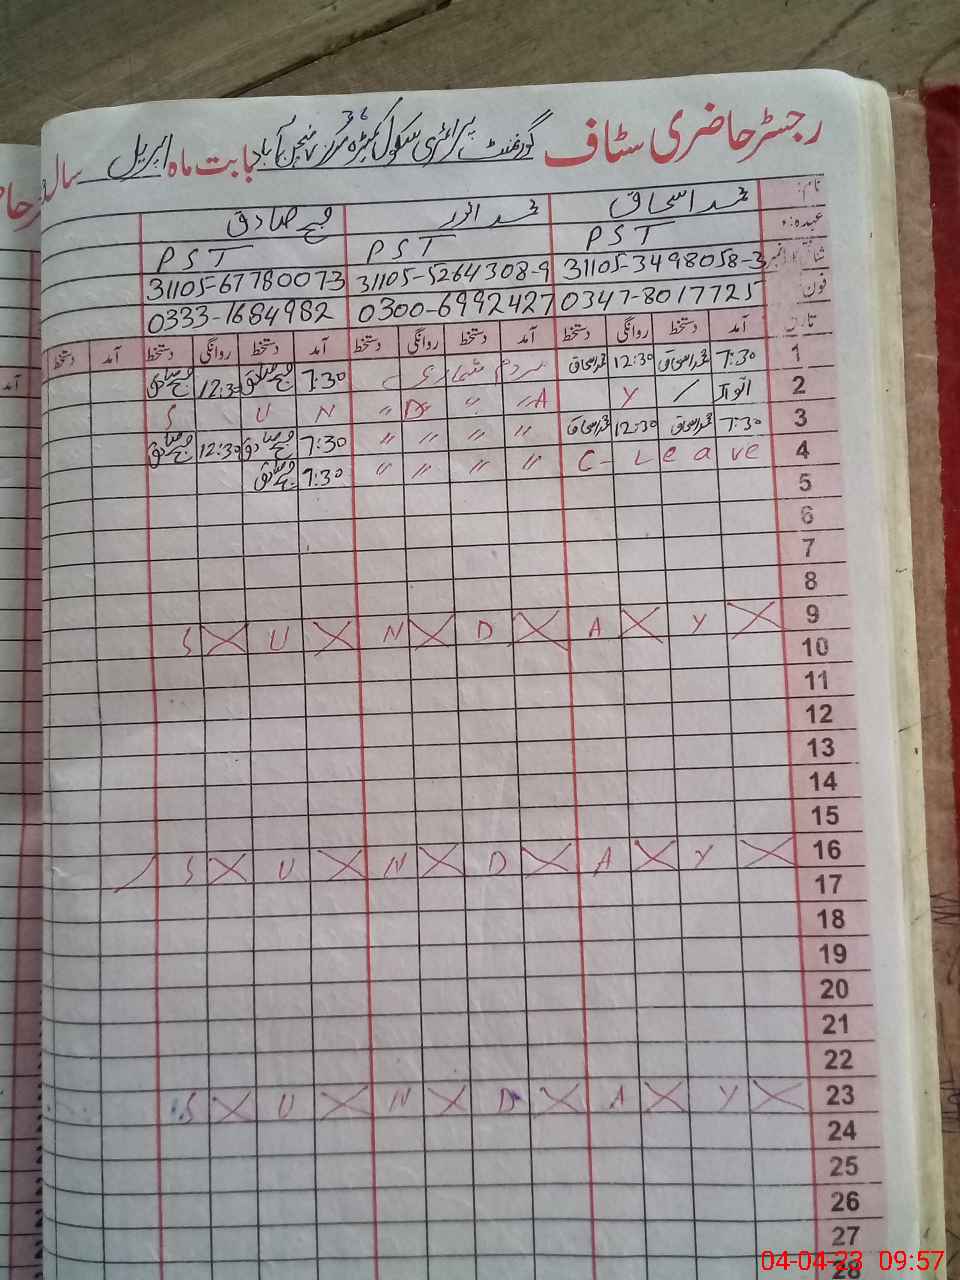 رجسٹر حاضری سٹاف گورنمنٹ پرائمری سکول 36 بابت ماہ اپریل سال
نام: محمد اسحاق محمد انور محمد صادق
عہدہ: PST PST PST
31105-3498058-3 31105-5264308-9 31105-6778007-3
فون 0347-8017725 0300-6992427 0333-1684982
تاریخ آمد دستخط روانگی دستخط آمد دستخط روانگی دستخط آمد دستخط روانگی دستخط آمد دستخط
1 7:30 محمد اسحاق 12:30 محمد اسحاق مردم شماری 7:30 محمد صادق 12:30 محمد صادق
2 اتوار / Y A " " D " N U S
3 7:30 محمد اسحاق 12:30 محمد اسحاق " " " " 7:30 محمد صادق 12:30 محمد صادق
4 C-Leave " " " " 7:30 محمد صادق
5
6
7
8
9 S U N D A Y
10
11
12
13
14
15
16 S U N D A Y
17
18
19
20
21
22
23 S U N D A Y
24
25
26
27
28
04-04-23 09:57